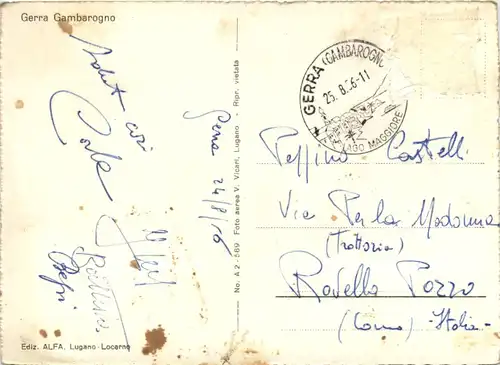 Gerra Gambarogno
Saluti cari
Carlo
Gerra 24/8/56
No. A 2 - 569 Foto aerea V. Vicari, Lugano - Ripr. vietata
GERRA (GAMBAROGNO)
25.8.56-11
LAGO MAGGIORE
Peppino Castelli
Via Per la Madonna
(Trattoria)
Rovello Pozzo
(Como) - Italia -
Ediz. ALFA, Lugano-Locarno